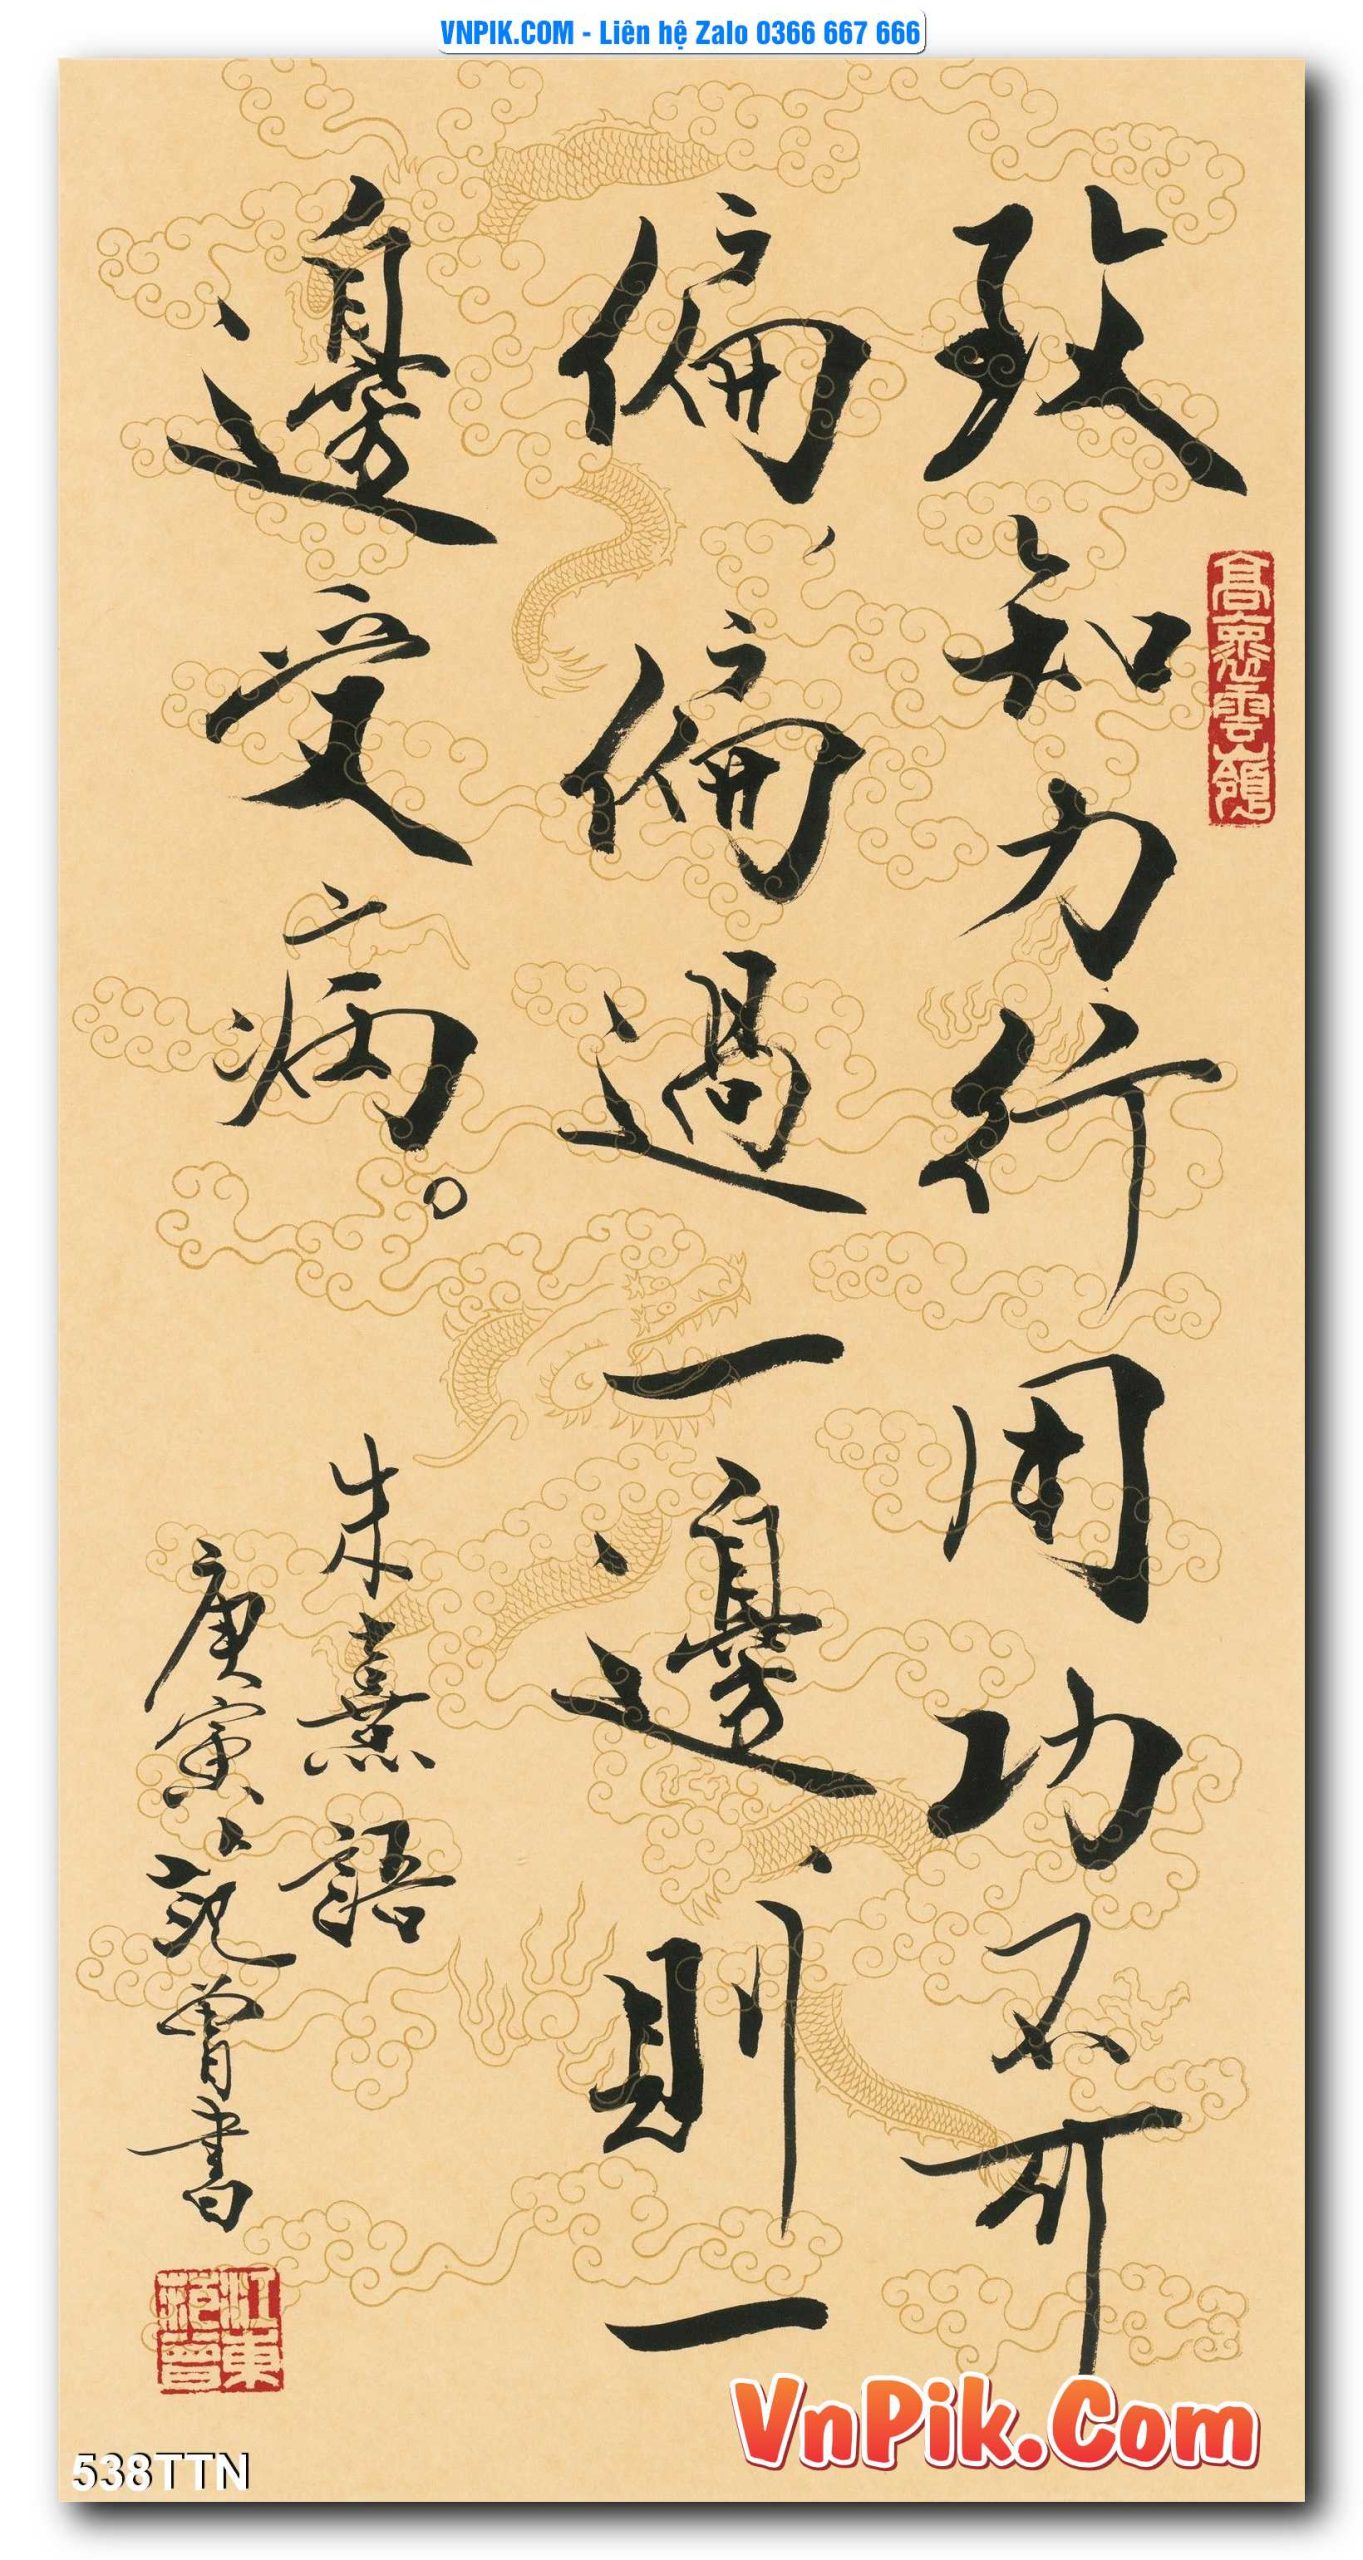 VNPIK.COM - Liên hệ Zalo 0366 667 666
致知力行用功不可
偏、偏過一邊、則一
邊受病。
朱熹語
庚寅 范曾書
江東范曾
VnPik.Com
538TTN